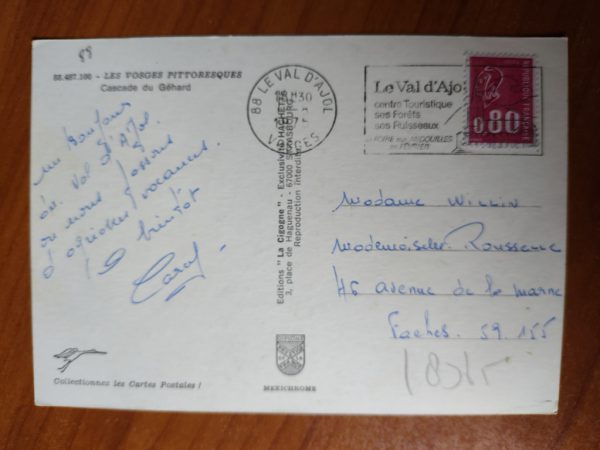 88
88.487.100 - LES VOSGES PITTORESQUES
Cascade du Géhard
un Bonjour
du Val d'Ajol
où nous passons
d'agréables vacances.
A bientôt
Editions "La Cigogne" - Exclusivité HACHETTE
3, place de Haguenau - 67000 STRASBOURG
Reproduction interdite
88 LE VAL D'AJOL
VOSGES
Le Val d'Ajo
centre Touristique
ses Forêts
ses Ruisseaux
FOIRE aux ANDOUILLES
en FEVRIER
0,80
Madame WILLIN
Mademoiselle Rousselle
46 avenue de la Marne
Faches. 59.155
Collectionnez les Cartes Postales !
MEXICHROME